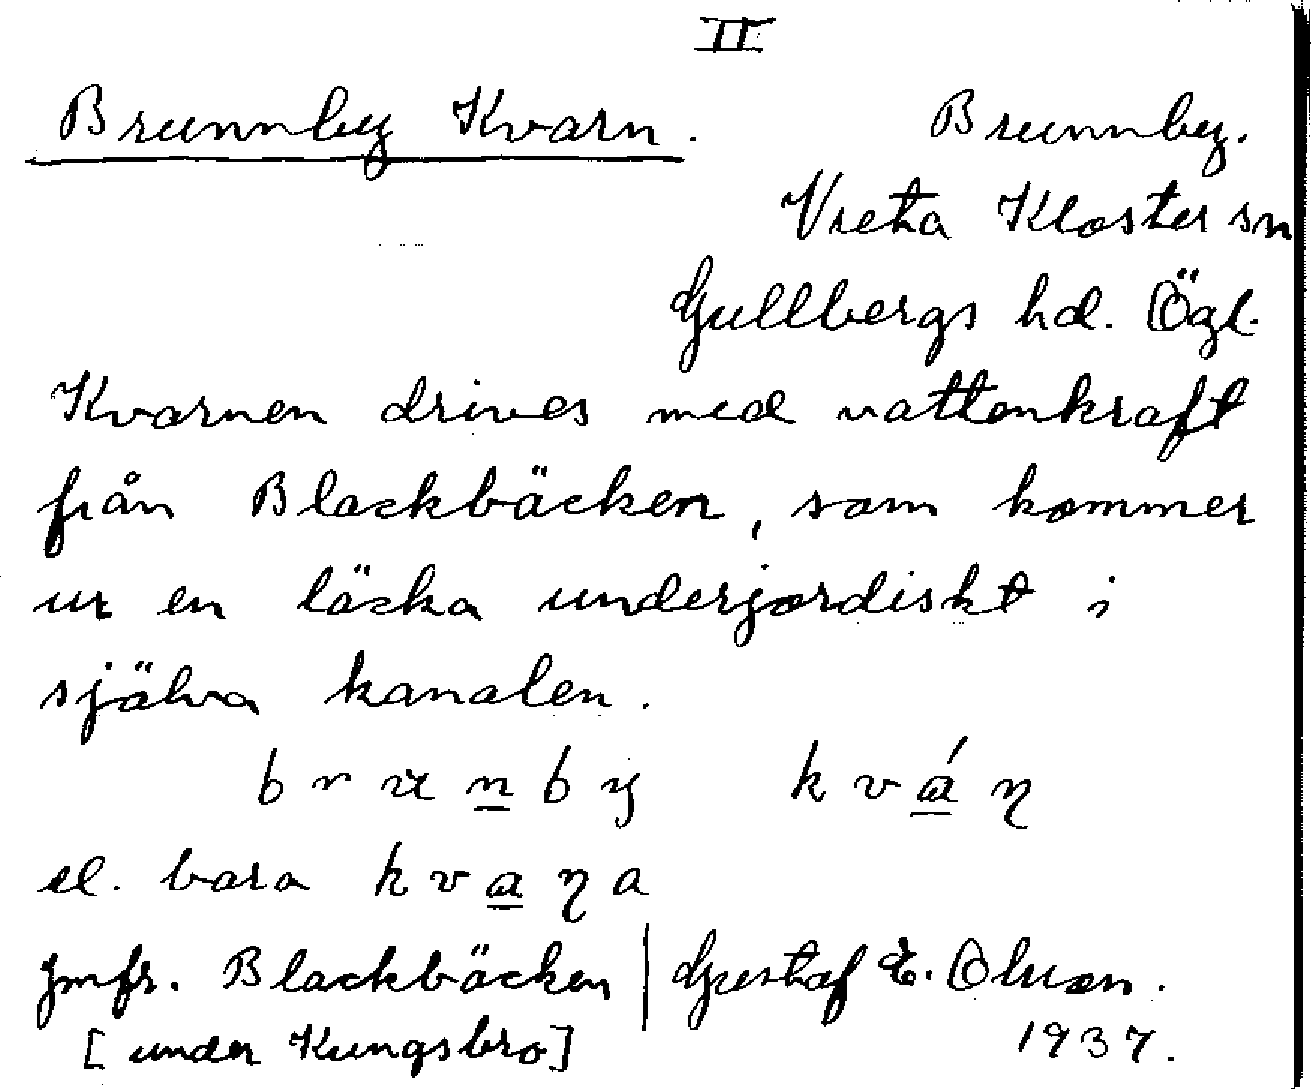 II
Brunnby Kvarn. Brunnby.
Vreta Kloster sn
Gullbergs hd. Ögl.
Kvarnen drives med vattenkraft
från Blackbäcken, som kommer
ur en läcka underjordiskt i
själva kanalen.
brunby kváṇ
el. bara kvaṇa
Jmfr. Blackbäcken | Gustaf E. Olsson.
[under Kungsbro] 1937.